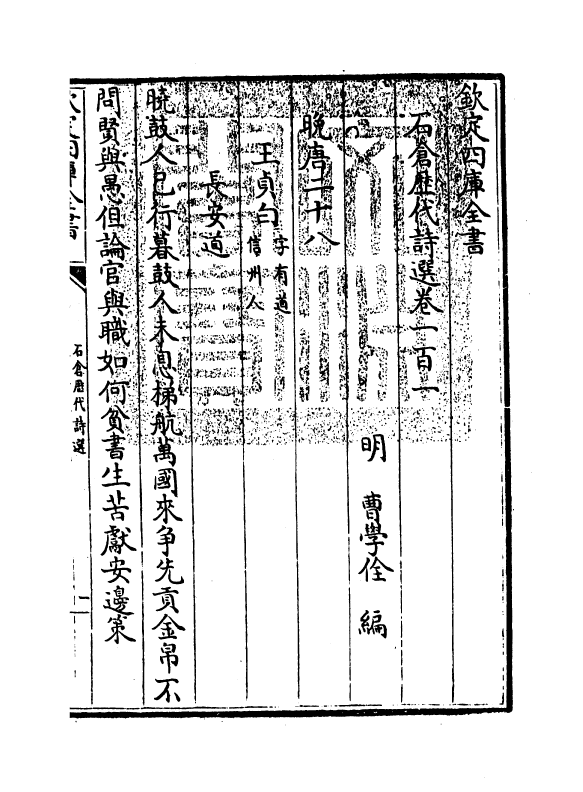 欽定四庫全書
石倉歷代詩選卷一百一
明 曹學佺 編
晚唐二十八
王貞白字有道信州人
長安道
曉鼓人已行暮鼓人未息梯航萬國來争先貢金帛不
問賢與愚但論官與職如何貧書生苦獻安邊策
欽定四庫全書
石倉歷代詩選
一